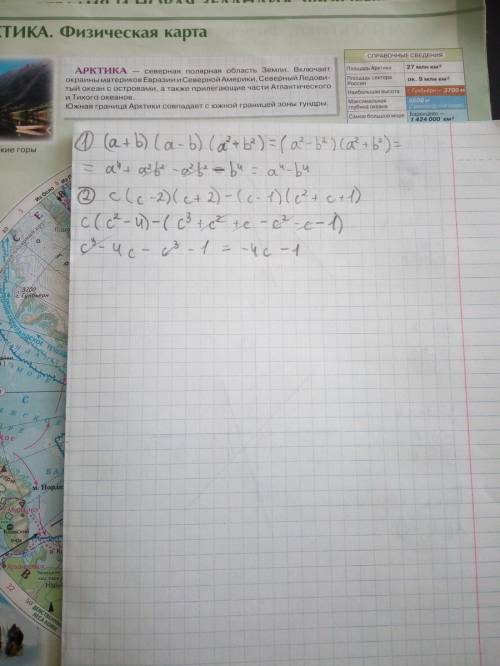 КТИКА. Физическая карта
АРКТИКА — северная полярная область Земли. Включает
окраины материков Евразии и Северной Америки, Северный Ледови-
тый океан с островами, а также прилегающие части Атлантического
и Тихого океанов.
Южная граница Арктики совпадает с южной границей зоны тундры.
СПРАВОЧНЫЕ СВЕДЕНИЯ
Площадь Арктики 27 млн км²
Площадь сектора России ок. 9 млн км²
Наибольшая высота г. Гунбьёрн 3700 м
Максимальная глубина океана
Самое большое море Баренцево 1 424 000 км²
кие горы
1) (a+b)(a-b)(a²+b²)=(a²-b²)(a²+b²)=
= a⁴ + a²b² - a²b² - b⁴ = a⁴-b⁴
2) c(c-2)(c+2)-(c-1)(c²+c+1)
c(c²-4)-(c³+c²+c-c²-c-1)
c³-4c-c³-1 = -4c-1
3700
г. Гунбьерн
м. Нордк
Мурманск